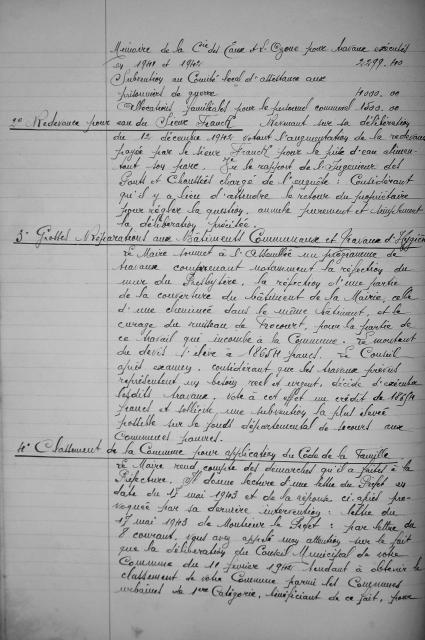 Mémoire de la Cie des Eaux et d'Ozone pour travaux exécutés
en 1941 et 1942 2299.40
Subvention au Comité local d'assistance aux
prisonniers de guerre 4000.00
Allocations familiales pour le personnel communal 1500.00
2° Redevance pour eau du Sieur Franck Revenant sur sa délibération
du 12 décembre 1942 votant l'augmentation de la redevance
payée par le sieur Franck pour la prise d'eau alimen-
tant son parc. Vu le rapport de l'Ingénieur des
Ponts et Chaussées chargé de l'enquête : Considérant
qu'il y a lieu d'attendre le retour du propriétaire
pour régler la question, annule purement et simplement
la délibération précitée.
3° Grosses Réparations aux Bâtiments Communaux et Travaux d'Hygiène
Le Maire soumet à l'Assemblée un programme de
travaux comprenant notamment la réfection du
mur du Presbytère, la réfection d'une partie
de la couverture du bâtiment de la Mairie, celle
d'une cheminée dans le même bâtiment, et le
curage du ruisseau de Trocourt, pour la partie de
ce travail que incombe à la Commune. Le montant
du devis s'élève à francs. Le Conseil
après examen, considérant que les travaux prévus
représentent un besoin réel et urgent, décide d'exécuter
lesdits travaux, vote à cet effet un crédit de
francs et sollicite une subvention la plus élevée
possible sur le fonds départemental de secours aux
Communes pauvres.
4° Classement de la Commune pour application du Code de la Famille
Le Maire rend compte des démarches qu'il a faites à la
Préfecture. Il donne lecture d'une lettre du Préfet en
date du 15 mai 1943 et de la réponse ci-après pro-
voquée par sa dernière intervention : lettre du
17 mai 1943 de Monsieur le Préfet : par lettre du
8 courant, vous avez appelé mon attention sur le fait
que la délibération du Conseil Municipal de votre
Commune du 11 février 1942 tendant à obtenir le
classement de votre Commune parmi les Communes
urbaines de 1ere Catégorie, bénéficiant de ce fait, pour